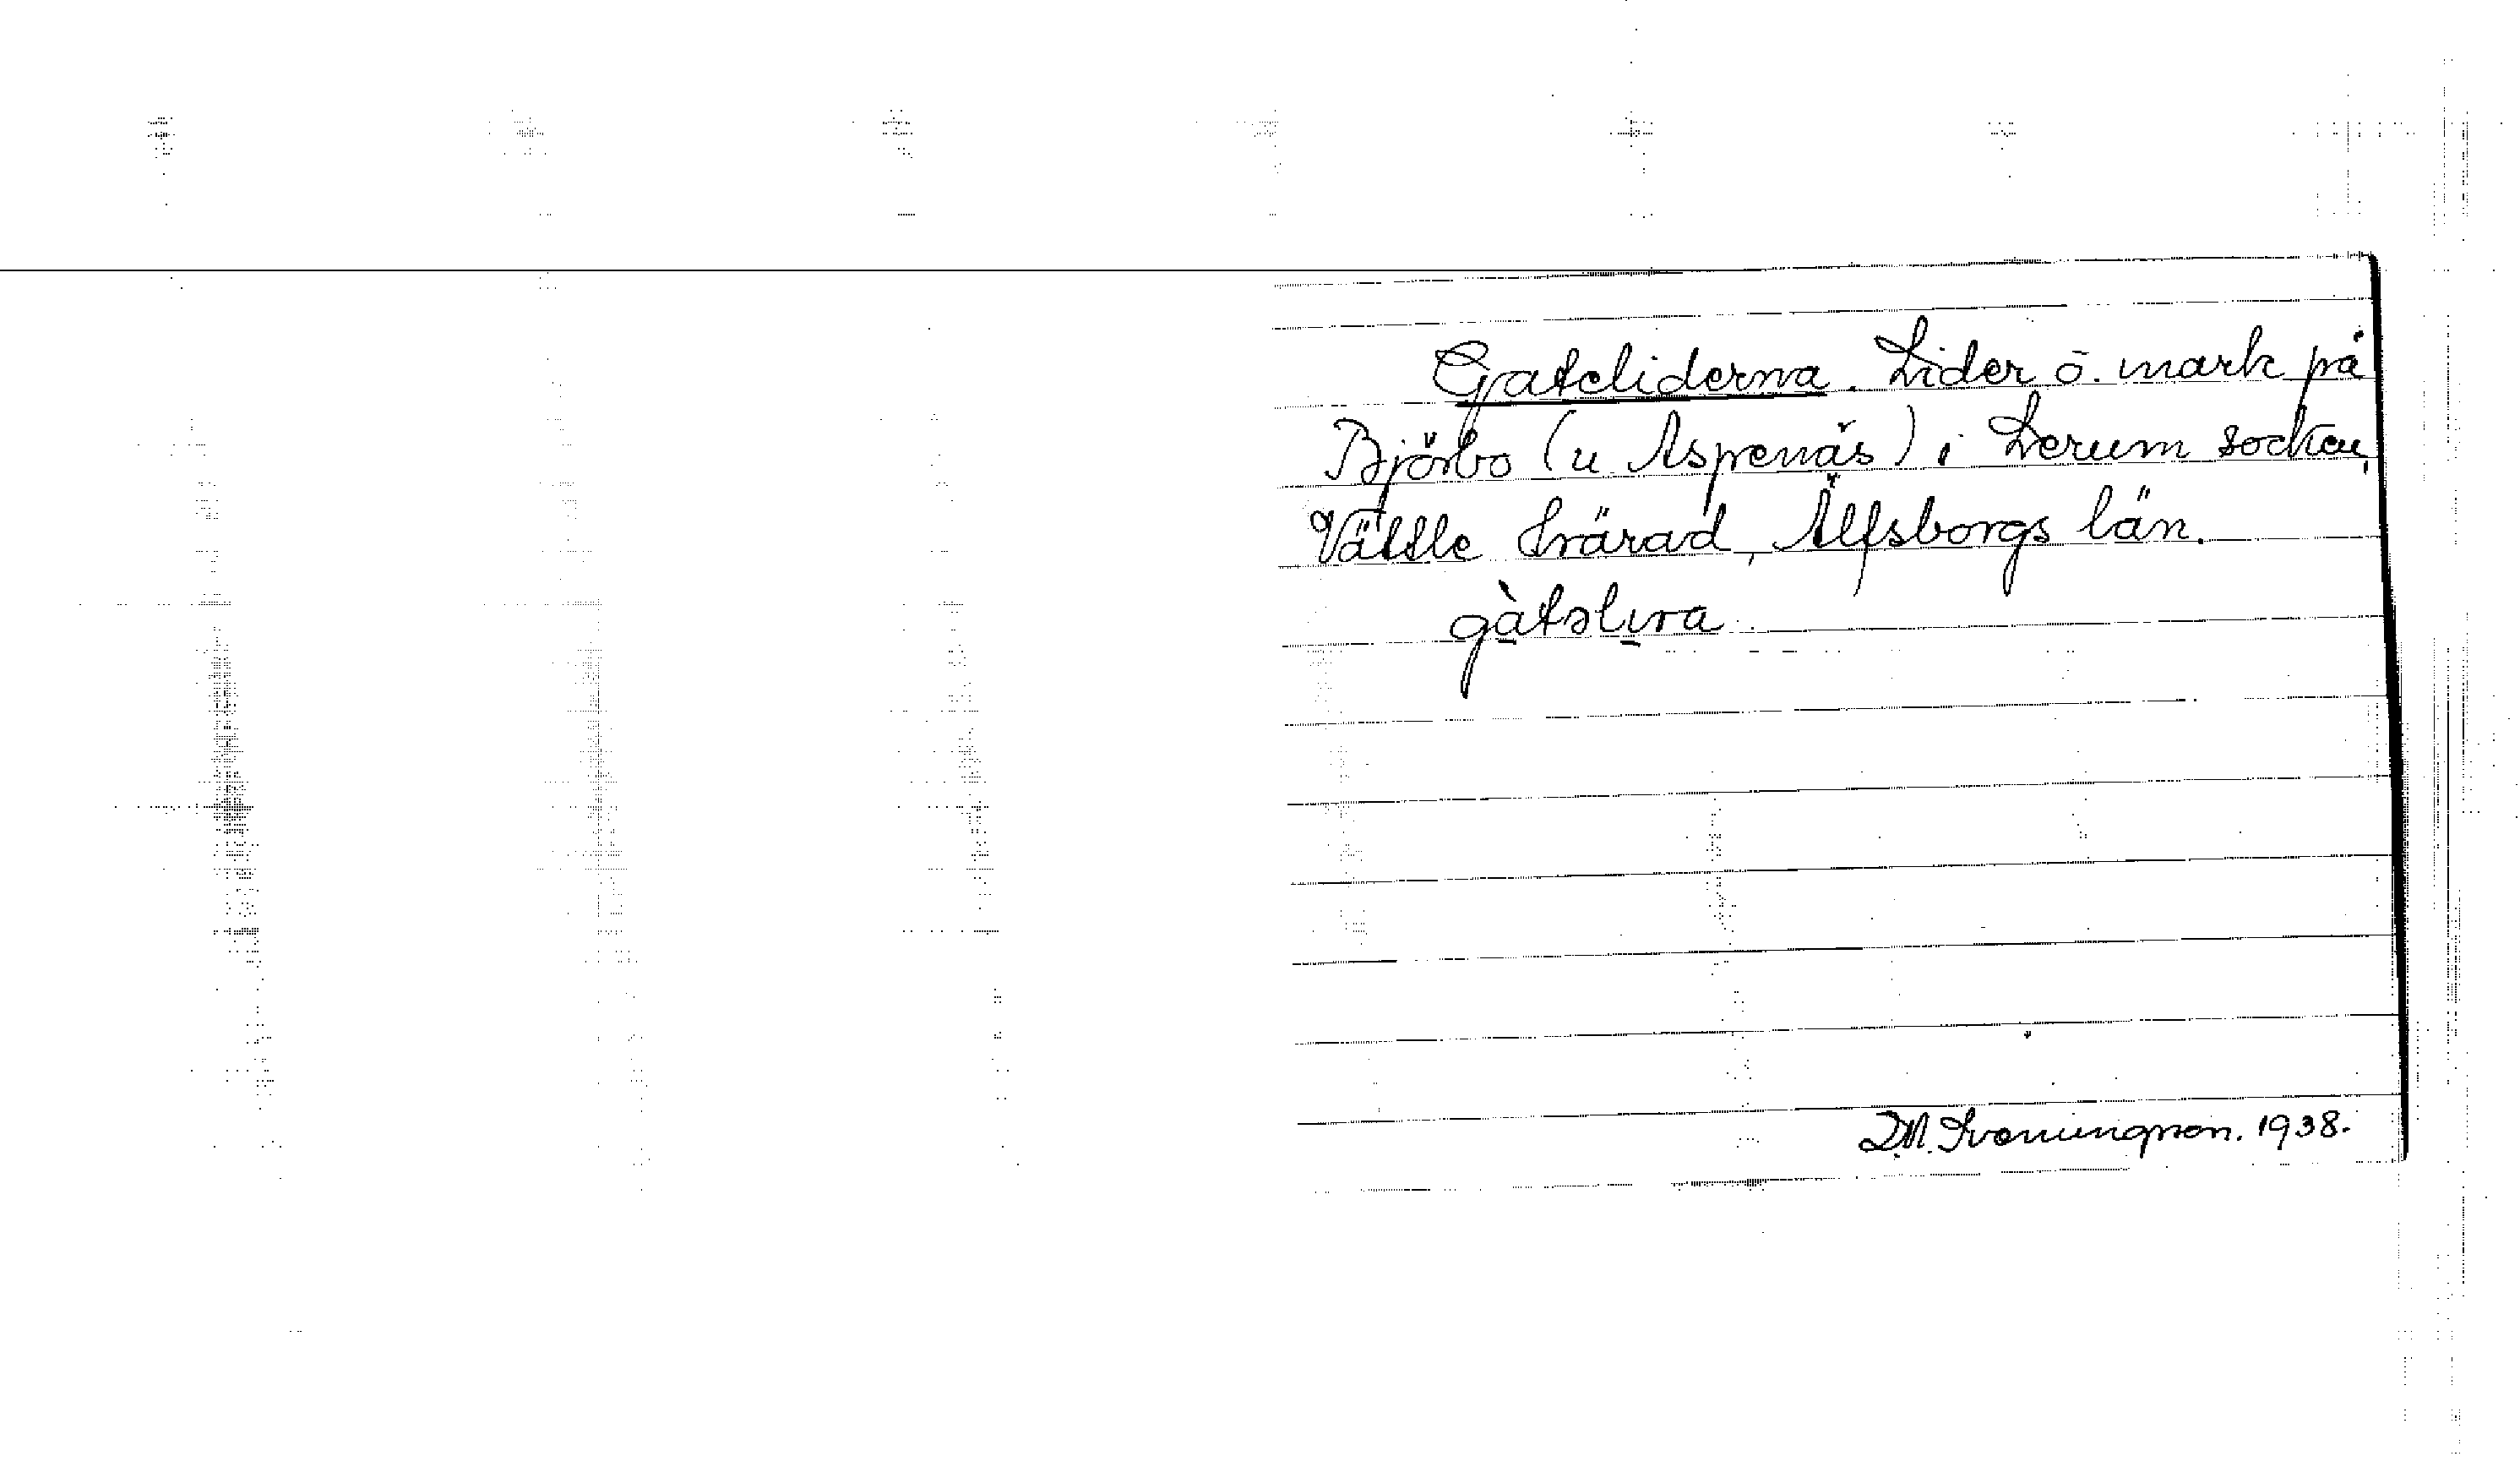 Gateliderna. Lider o. mark på
Björbo (u Aspenäs) i Lerum socken,
Vättle härad, Älfsborgs län.
gàtəlıra
D.M. Svenningson. 1938.